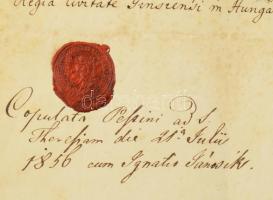 Regia Civitate Ginsiensi in Hunga
Copulata Pestini ad S.
Theresiam die 21ª Julii
1856 cum Ignatio Jánosik.